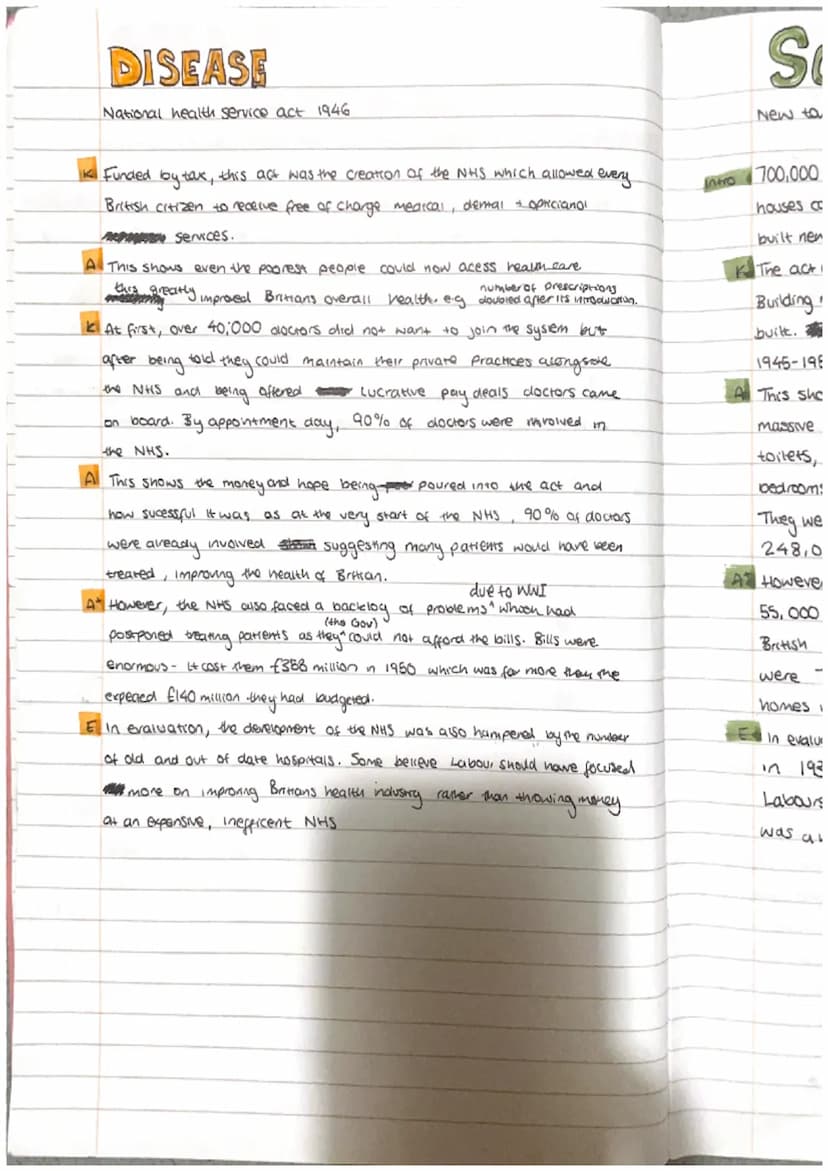 DISEASE
National health service act 1946
K Funded by tax, this act was the creation of the NHS which allowed every
British citizen to receive free of charge medical, dental + opticianal
services.
A This shows even the poorest people could now acess healthcare
this greatly improved Britians overall health. e.g number of prescriptions doubled after its introduction.
K At first, over 40,000 doctors did not want to join the sysem but
after being told they could maintain their private practices alongside
the NHS and being offered lucrative pay deals doctors came
on board. By appointment day, 90% of doctors were involved in
the NHS.
A This shows the money and hope being poured into the act and
how sucessful it was as at the very start of the NHS, 90% of doctors
were already involved suggesting many patients would have been
treated, improving the health of Britian.
A+ However, the NHS also faced a backlog of problems ^ due to WWI which had
postponed treating patients as they ^ (the Gov) could not afford the bills. Bills were
enormous - it cost them £358 million in 1950 which was far more than the
expeced £140 million they had budgeted.
E In evaluation, the development of the NHS was also hampered by the number
of old and out of date hospitals. Some believe Labour should have focused
more on improving Britians health industry rather than throwing money
at an expensive, inefficent NHS
So
New to
Intro 700,000
houses co
built new
K The act
Building
built.
1945-195
A This sho
massive
toilets,
bedrooms
They we
248,0
A+ However
55,000
British
were
homes
E In evalu
in 193
Labours
was a